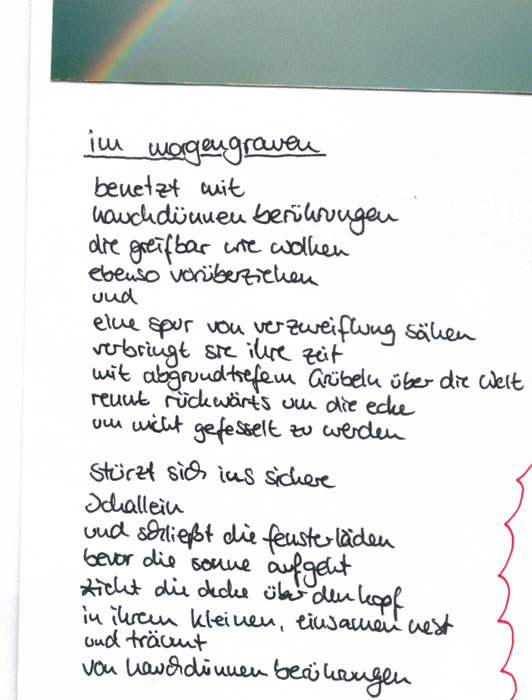 im morgengrauen
benetzt mit
hauchdünnen berührungen
die greifbar wie wolken
ebenso vorüberziehen
und
eine spur von verzweiflung sähen
verbringt sie ihre zeit
mit abgrundtiefem Grübeln über die Welt
rennt rückwärts um die ecke
um nicht gefesselt zu werden
stürzt sich ins sichere
Ichallein
und schließt die fensterläden
bevor die sonne aufgeht
zieht die decke über den kopf
in ihrem kleinen, einsamen nest
und träumt
von hauchdünnen berührungen